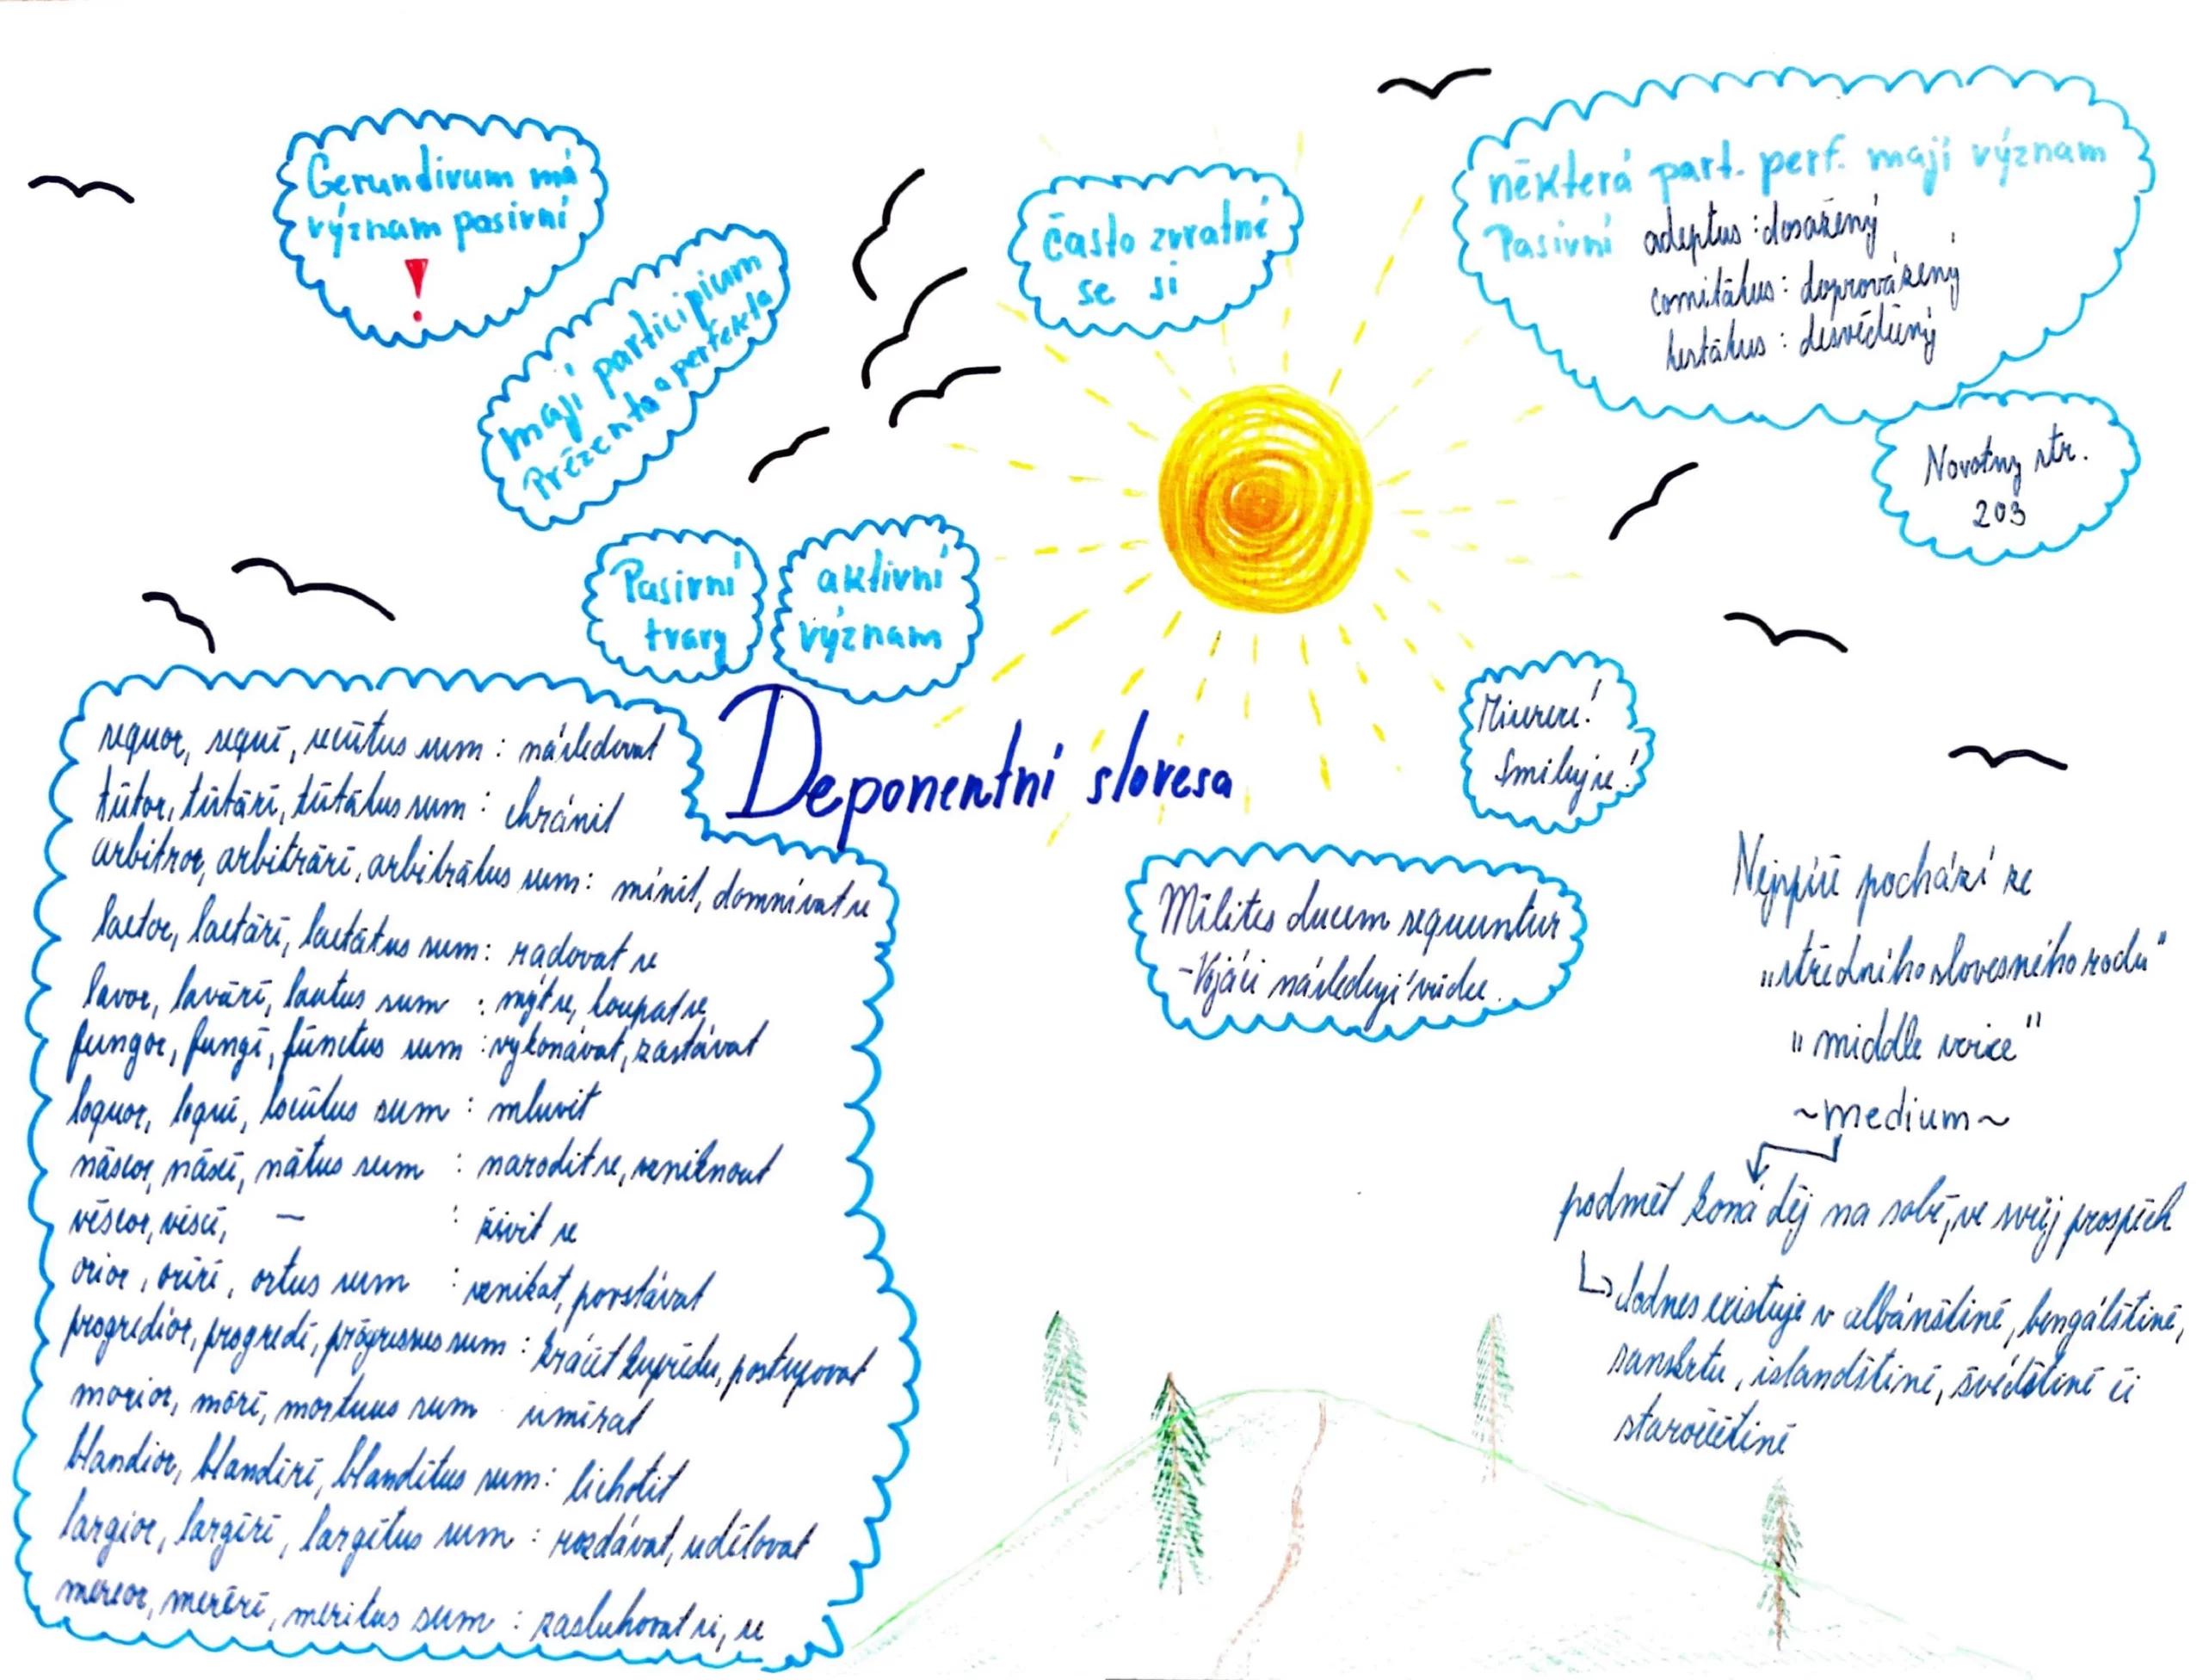 Gerundivum má
význam pasivní
!
mají participium
prézenta a perfekta
často zvratné
se si
některá part. perf. mají význam
Pasivní adeptus : dosažený
comitātus : doprovázený
testātus : dosvědčený
Novotny str.
203
Pasivní
tvary
aktivní
význam
Deponentní slovesa
sequor, sequī, secūtus sum : následovat
tūtor, tūtārī, tūtātus sum : chránit
arbitror, arbitrārī, arbitrātus sum : mínit, domnívat se
laetor, laetārī, laetātus sum : radovat se
lavor, lavārī, lautus sum : mýt se, koupat se
fungor, fungī, fūnctus sum : vykonávat, zastávat
loquor, loquī, locūtus sum : mluvit
nāscor, nāscī, nātus sum : narodit se, vzniknout
vēscor, vēscī, — : živit se
orior, orīrī, ortus sum : vznikat, povstávat
progredior, progredī, prōgressus sum : kráčet kupředu, postupovat
morior, morī, mortuus sum umírat
blandior, blandīrī, blandītus sum : lichotit
largior, largīrī, largītus sum : rozdávat, udělovat
mereor, merērī, meritus sum : zasluhovat si, se
Miserere!
Smiluj se!
Mīlitēs ducem sequuntur
-Vojáci následují vůdce.
Nejspíše pochází ze
„středního slovesného rodu“
"middle voice"
~medium~
podmět koná děj na sobě, ve svůj prospěch
dodnes existuje v albánštině, bengálštině,
sanskrtu, islandštině, švédštině či
staročeštině